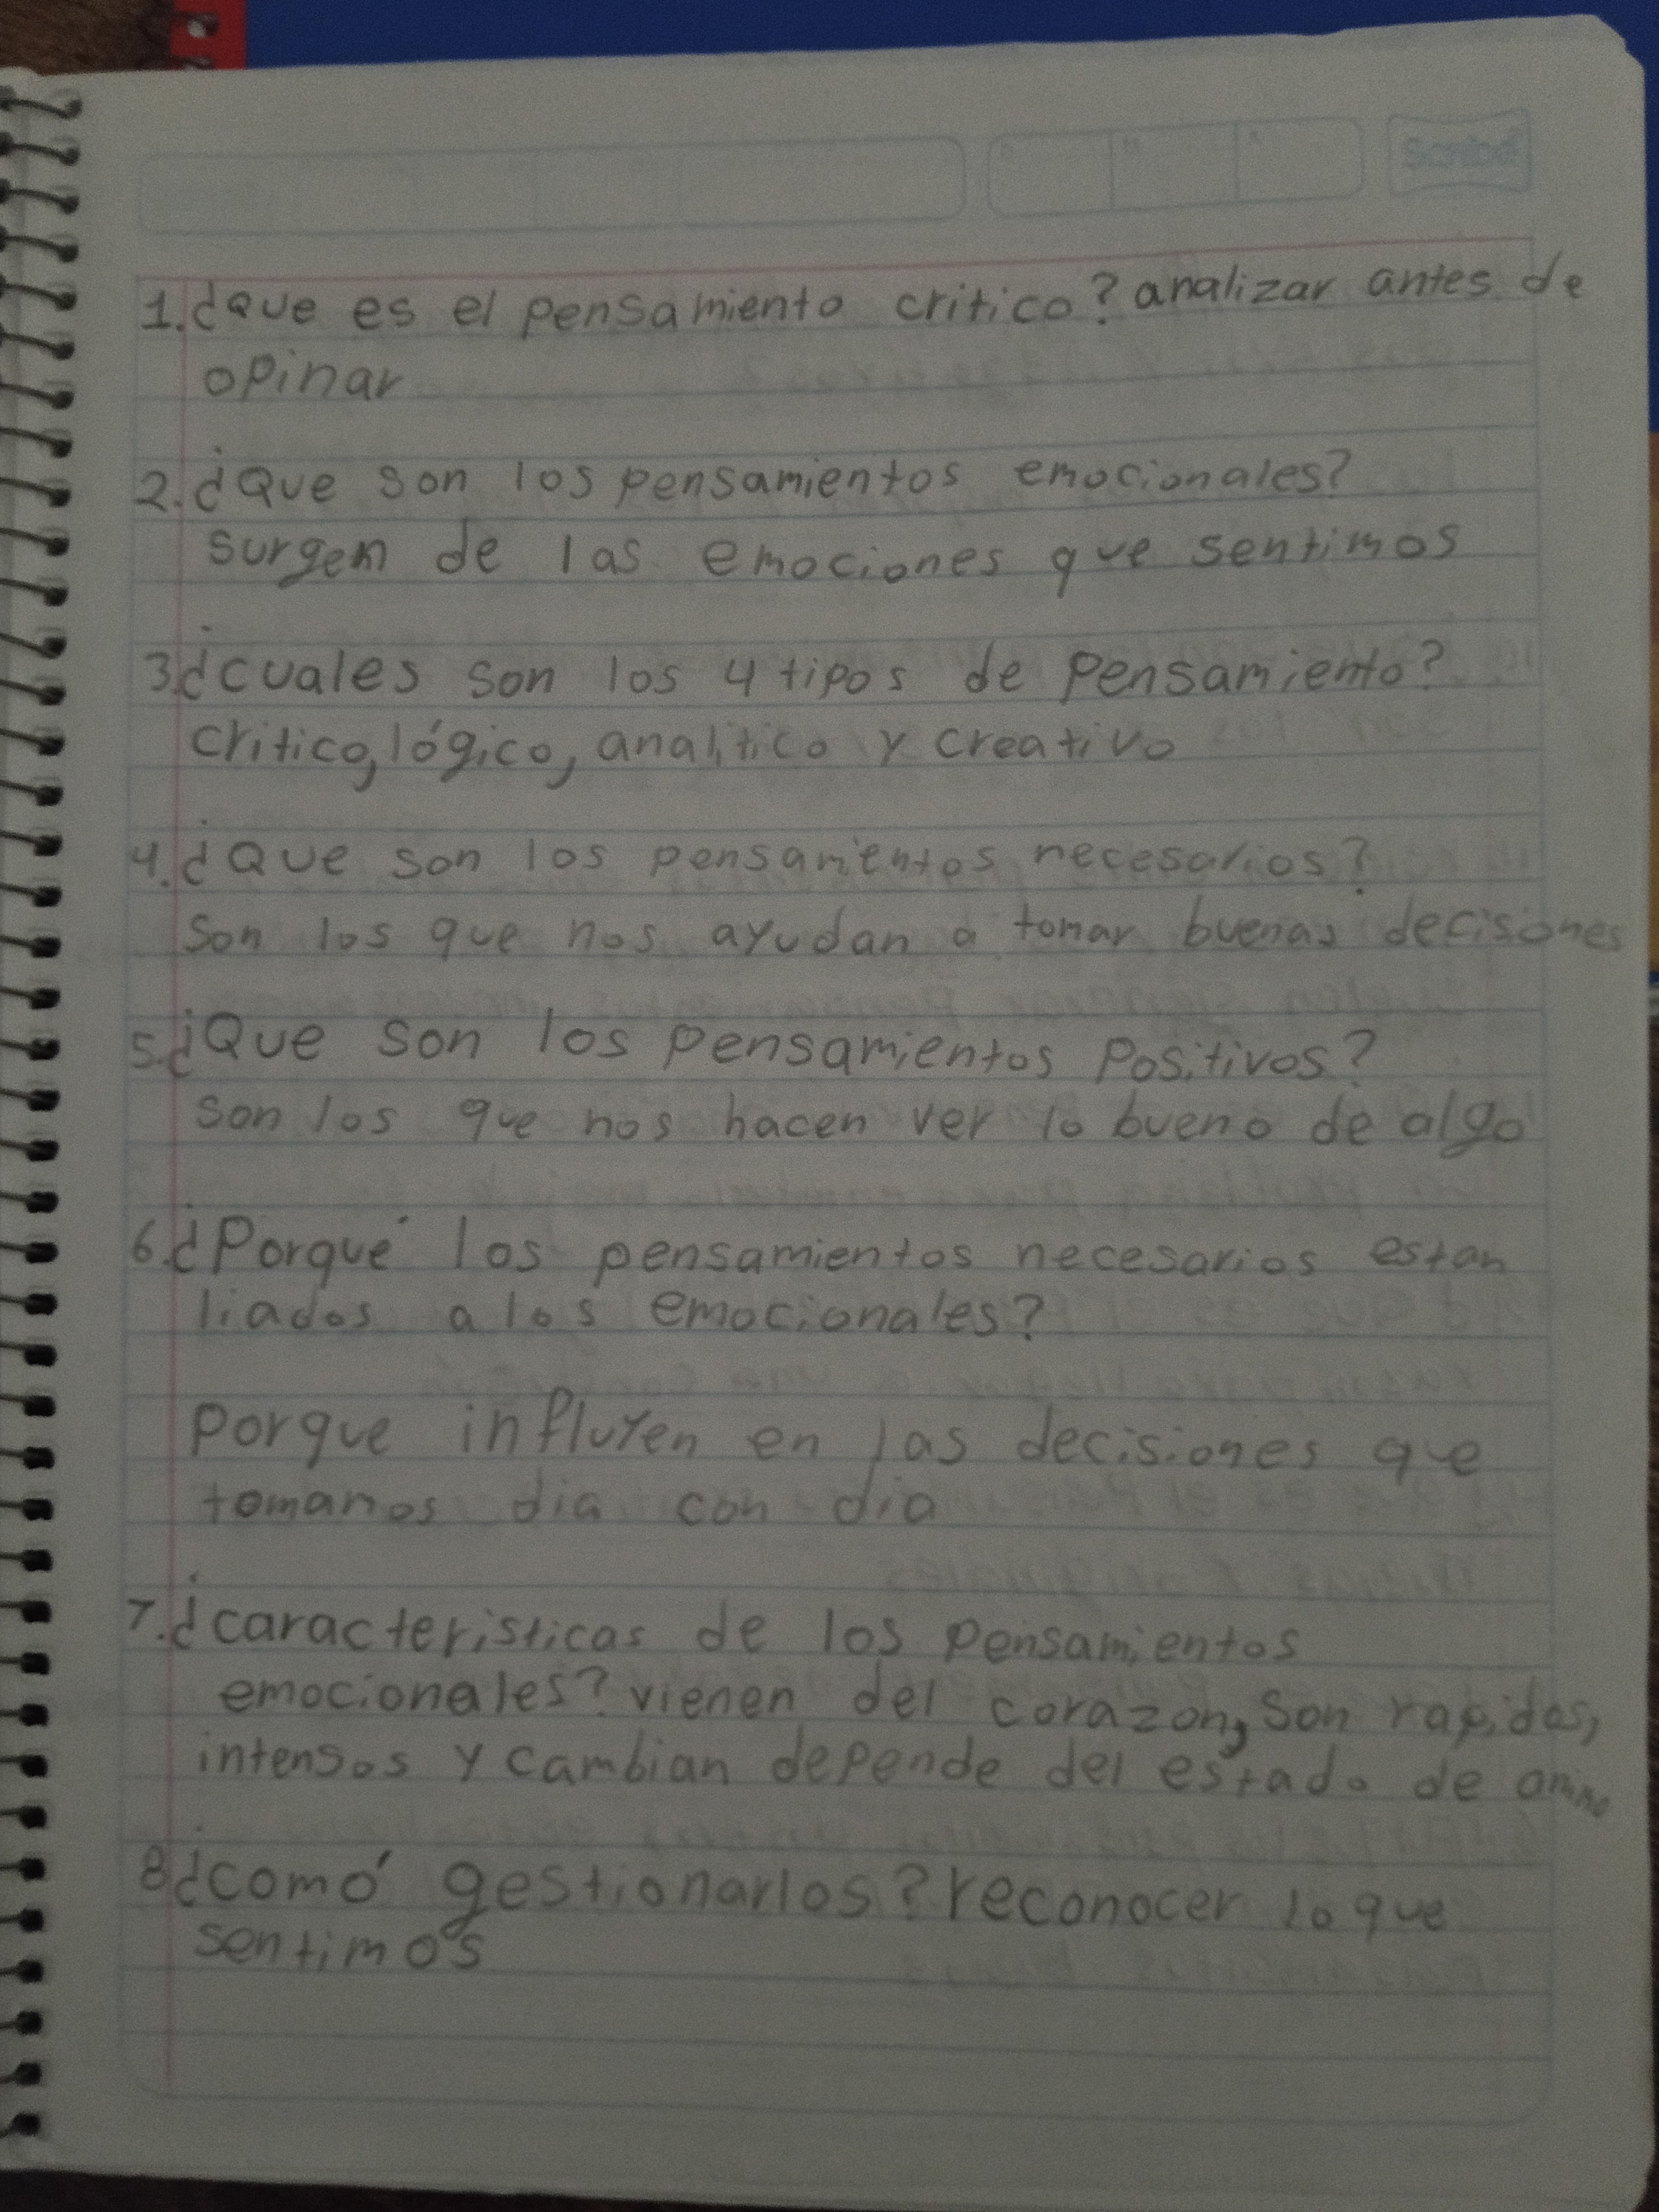 Scribe
1.¿que es el pensamiento critico? analizar antes de
opinar
2.¿Que son los pensamientos emocionales?
surgen de las emociones que sentimos
3.¿cuales son los 4 tipos de pensamiento?
critico, lógico, analitico y creativo
4.¿Que son los pensamientos necesarios?
Son los que nos ayudan a tomar buenas decisiones
5.¿Que son los pensamientos positivos?
son los que nos hacen ver lo bueno de algo
6.¿Porqué los pensamientos necesarios estan
liados a los emocionales?
Porque influyen en las decisiones que
tomamos dia con dia
7.¿características de los pensamientos
emocionales? vienen del corazon, son rapidos,
intensos y cambian depende del estado de animo
8¿comó gestionarlos? reconocer lo que
sentimos